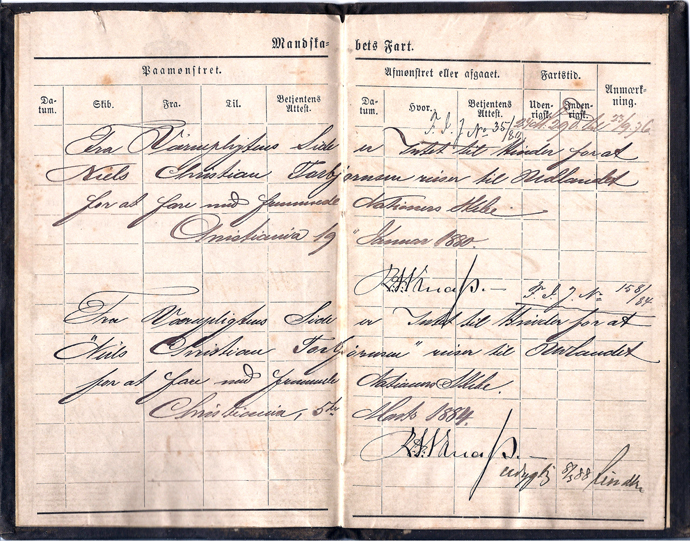 Mandska- bets Fart.
Paamonstret. Afmonstret eller afgaaet. Fartstid. Anmærk-ning.
Da-tum. Skib. Fra. Til. Betjentens Attest. Da-tum. Hvor. Betjentens Attest. Uden-rigsk. Inden-rigsk.
F. S. J. No 35/80
23/9 36
Fra Værnepligtens Side er Intet til Hinder for at
Niels Christian Torbjørnsen reiser til Udlandet
for at fare med fremmede Nationers Skibe.
Christiania 19 Januar 1880
F. S. J. No 158/84.
Fra Værnepligtens Side er Intet til Hinder for at
"Niels Christian Torbjørnsen" reiser til Udlandet
for at fare med fremmede Nationers Skibe.
Christiania, 5te Marts 1884.
8/3 88